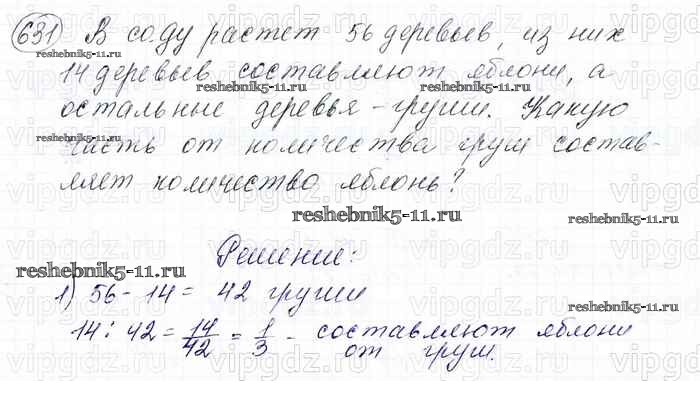 631 В соду растет 56 деревьев, из них
14 деревьев составляют яблони, а
остальные деревья - груши. Какую
часть от количества груш состав-
ляет количество яблонь?
Решение:
1) 56 - 14 = 42 груши
14 : 42 = 14/42 = 1/3 - составляют яблони
от груш.
reshebnik5-11.ru
reshebnik5-11.ru
reshebnik5-11.ru
reshebnik5-11.ru
reshebnik5-11.ru
reshebnik5-11.ru
reshebnik5-11.ru
reshebnik5-11.ru